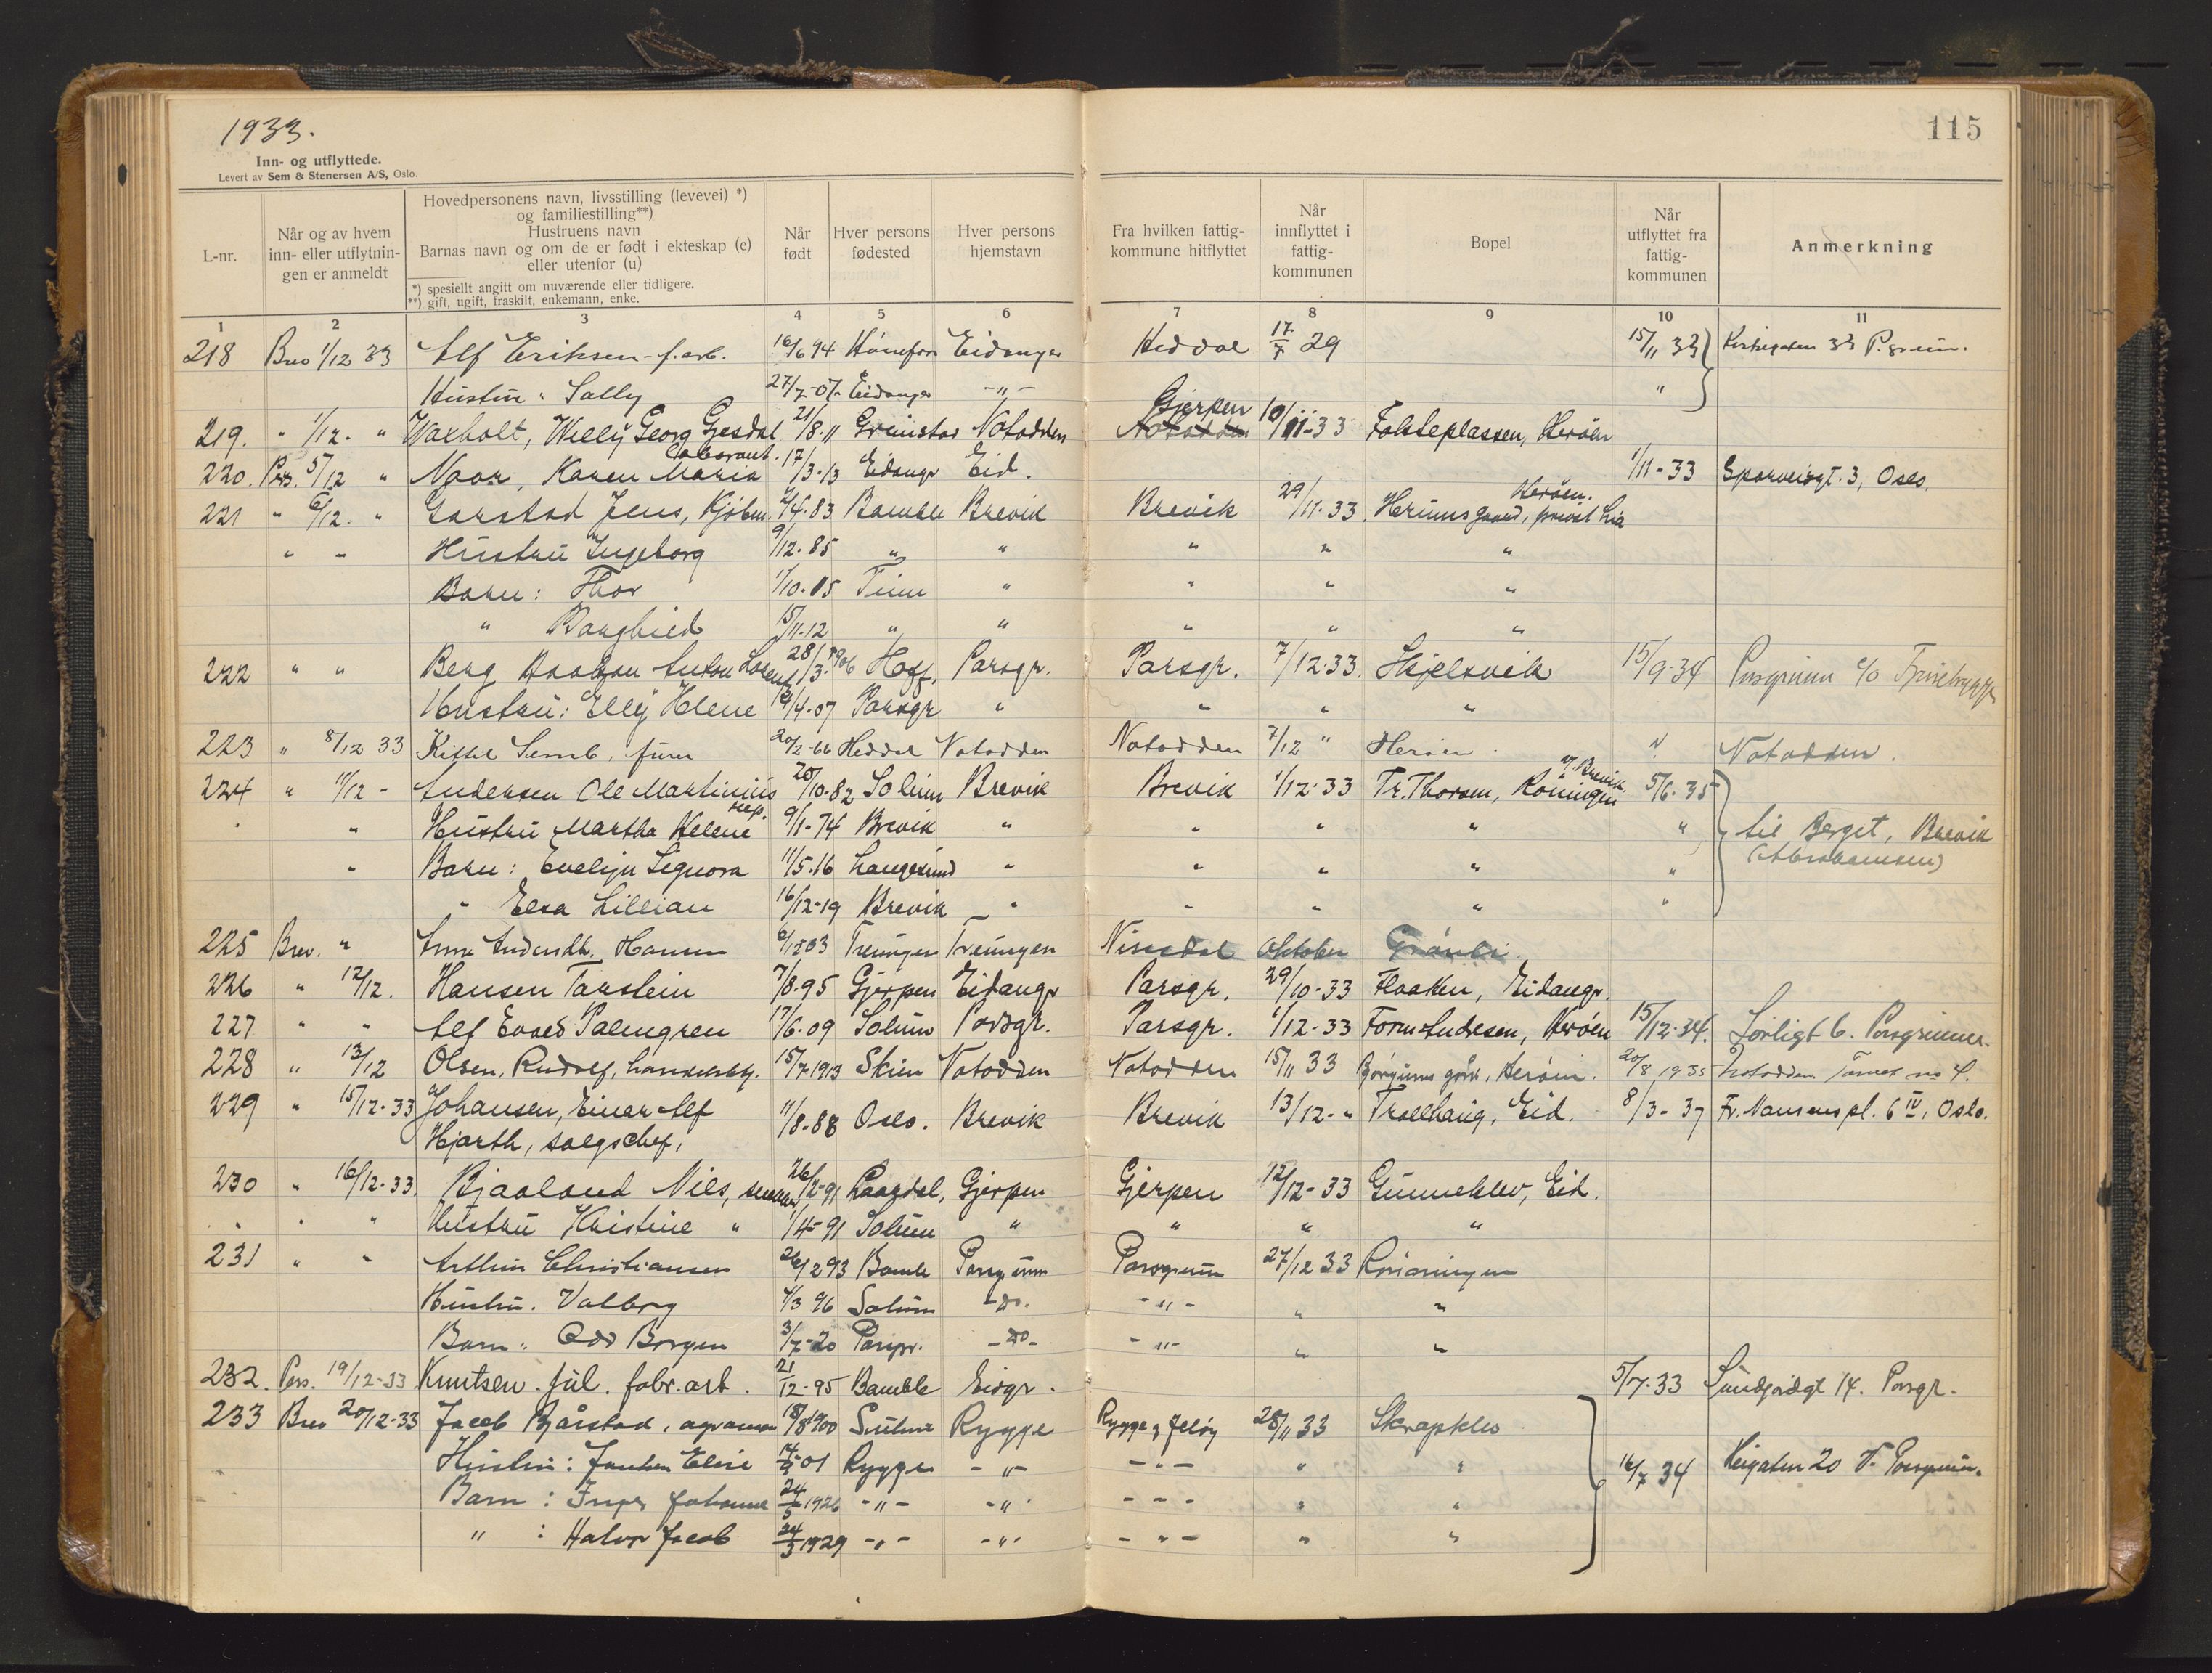 1933.
115
Inn- og utflyttede.
Levert av Sem & Stenersen A/S, Oslo.
L-nr.
Når og av hvem inn- eller utflytnin-gen er anmeldt
Hovedpersonens navn, livsstilling (levevei) *)
og familiestilling**)
Hustruens navn
Barnas navn og om de er født i ekteskap (e)
eller utenfor (u)
*) spesiellt angitt om nuværende eller tidligere.
**) gift, ugift, fraskilt, enkemann, enke.
Når født
Hver persons fødested
Hver persons hjemstavn
Fra hvilken fattig-kommune hitflyttet
Når innflyttet i fattig-kommunen
Bopel
Når utflyttet fra fattig-kommunen
Anmerkning
1 2 3 4 5 6 7 8 9 10 11
218 Brev 1/12 33 Alf Eriksen - f.arb. 16/6 94 Hønefoss Eidanger Heddal 17/7 29 15/11 33 Kirkegaten 33 P.grunn.
Hustru: Sally 27/7-07 Eidanger -"- "
219. " 1/12. " Waxholt, Willy Georg Gjesdal 21/8.11 Grimstad Notodden Notodden Gjerpen 10/11-33 Folsteplassen, Herøen
220. Pers. 5/12 " Noor, Karen Maria 17/3-13 Eidangr Eid. 1/11-33 Sporveisgt. 3, Oslo.
221 " 6/12. " Garstad Jens, Kjøbm. 2/4.83 Bamble Brevik Brevik 29/11.33. Heriums gaard, Herøen.
" - Hustru Ingeborg 9/12.85 " " " " "
Barn: Thor 1/10.15 Tinn " " " "
" Ranghild 15/11-12 " " " " "
222 " " Berg Haakon Anton Lorentz 28/3.1906 Hoff, Porsgr. Porsgr. 7/12.33. Skjelsvik 15/9.34 Porsgrunn c/o
Hustru: Elly Helene 19/4.07 Porsgr " " " "
223 " 8/12 33 Kittil Semb, 20/2-66 Heddal Notodden Notodden 7/12 " Herøen Notodden.
224 " 11/12 - Andersen Ole Martinius 20/10.82 Solum Brevik Brevik 1/12.33 Tr. Thorsen, Røningen v/Brevik 5/6.35
" Hustru Martha Helene 9/1-74 Brevik " " " " " til Berget, Brevik
" Barn: Evelyn Signora 11/5.16 Langesund " " " " " (Abrahamsen)
" Elsa Lillian 16/12-19 Brevik " " " " "
225 Brev. " Anna Hansen 6/12 03 Treungen Treungen Nissedal Oktober Grønli
226 " 12/12. Hansen Torstein 7/8.95 Gjerpen Eidangr Porsgr. 29/10-33 Flaaten, Eidangr.
227 " " Alf Evald Palmgren 17/6.09 Solum Porsgr. Porsgr. 1/12-33 Herøen 15/12.34. Porsgrunn.
228 " 13/12 Olsen, Rudolf, 15/7 1913 Skien Notodden Notodden 15/11 33 Herøen. 20/8 1935 Notodden
229 " 15/12.33 Johansen, Einar Alf 11/8.88 Oslo. Brevik Brevik 13/12-" Trollhaug, Eid. 8/3-37 Fr. Nansens pl. 6 IV, Oslo.
Hjorth, salgschef,
230 " 16/12.33. Bjaaland Nils, 26/2-91 Laardal, Gjerpen Gjerpen 12/12-33 Gunneklev, Eid.
" " " Hustru Kristine " 1/4-91 Solum " " " "
231 " " Arthur Christiansen 26/2 93 Bamle Porsgrunn Porsgrunn 27/12 33 Røiningen
Hustru. Valborg 4/3 96 Solum -do. -"- " "
Barn: Odd Borgen 3/7-20 Porsgr. -do- -"- " "
232. Pers. 19/12-33 Knutsen. Jul. fabr.arb. 21/12-95 Bamble Eidgr. 5/7.33 Sundjordgt 14. Porsgr.
233 Brev 20/12-33 Jacob Bjårstad, 18/8 1900 Rygge Rygge, Jeløy 28/11 33 Skrapklev
Hustru: Elise 14/9 01 Rygge -"- -"- " " 16/7 34 Heigaten 20 V. Porsgrunn.
Barn: Inger Johanne 24/5 1926 -"- -"- - - - " "
" : Halvor Jacob 24/3 1929 -"- -"- -"- " "